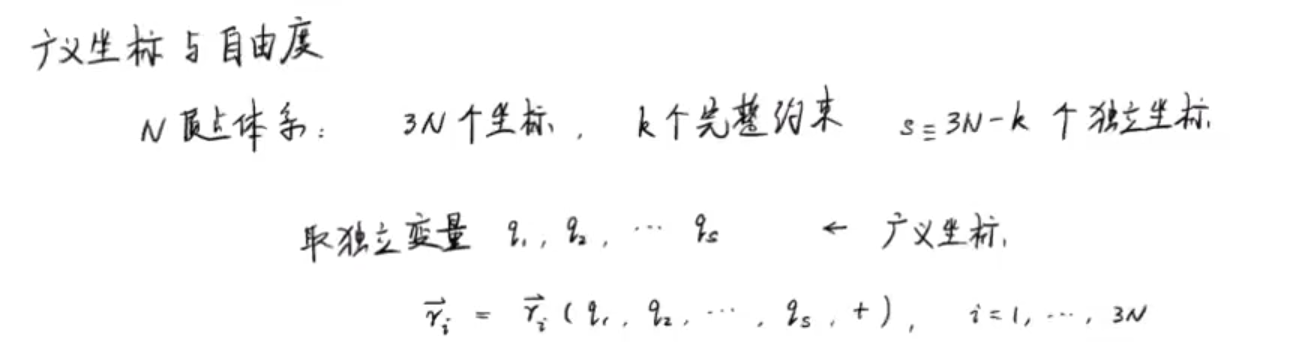 广义坐标与自由度
N质点体系: 3N个坐标, k个完整约束 s≡3N-k 个独立坐标.
取独立变量 q₁, q₂, ⋯ qₛ ← 广义坐标.
r⃗ᵢ = r⃗ᵢ (q₁, q₂, ⋯, qₛ, t), i=1, ⋯, 3N